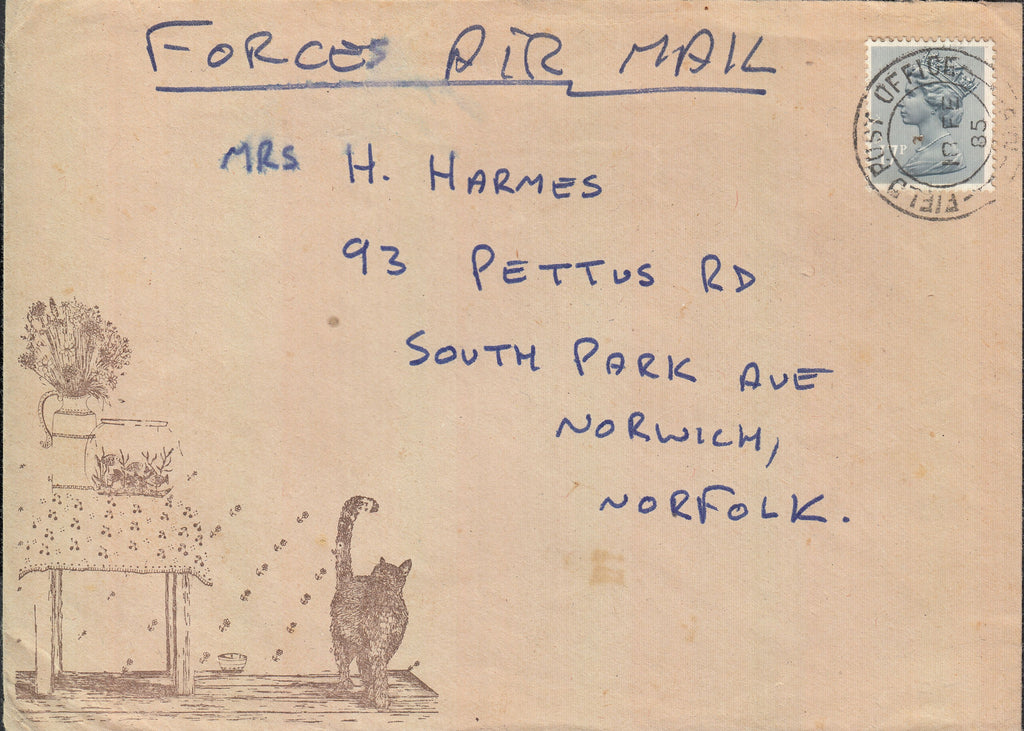 FORCES AIR MAIL
MRS H. HARMES
93 PETTUS RD
SOUTH PARK AVE
NORWICH,
NORFOLK.
FIELD POST OFFICE
18 FE
85